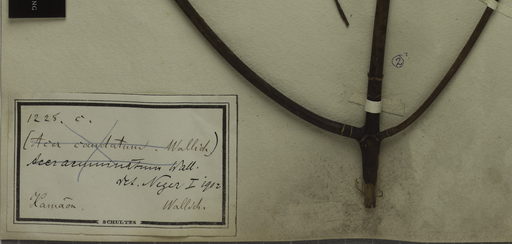 NG
②
1225. c.
(Acer caudatum. Wallich)
Acer acuminatum Wall.
det. Neger I 1902
Kamäon. Wallich.
SCHULTZE